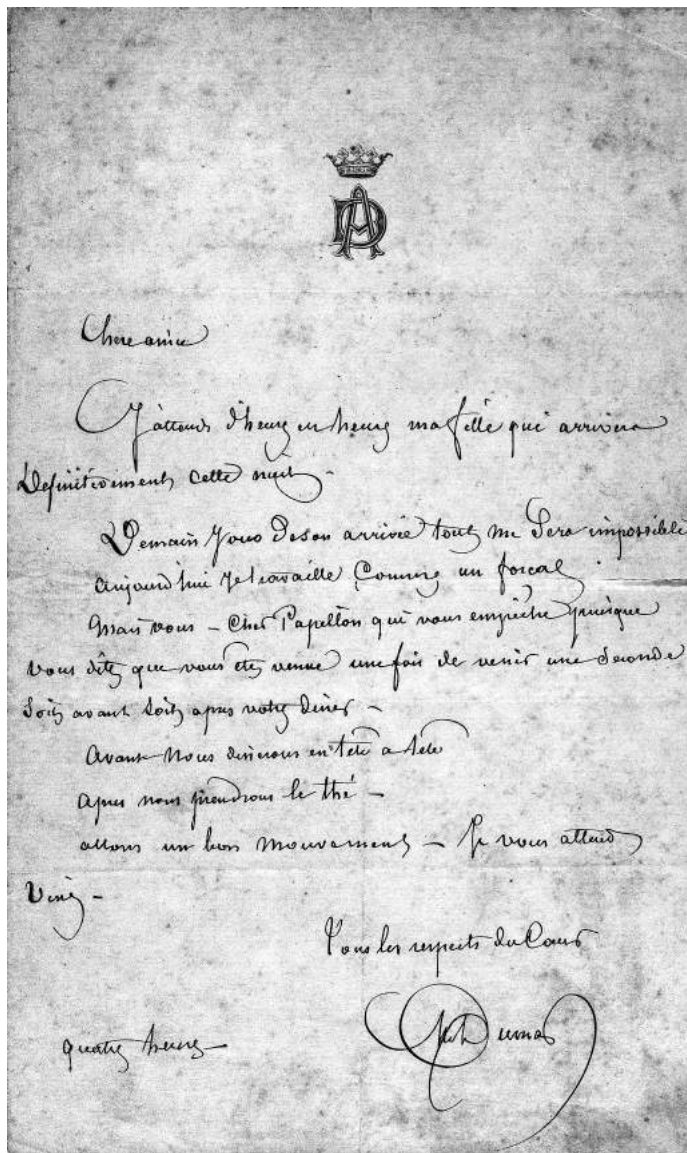 AD
Chere amie
J'attends d'heure en heure ma fille qui arrivera
Definitivement cette nuit –
Demain jour de son arrivée tout me sera impossible
aujourd'hui je travaille comme un forçat
Mais vous – Cher Papillon qui vous empêche puisque
vous dites que vous etes venue une fois de venir une seconde
soit avant soit apres votre diner –
Avant nous dinerons en tete a tete
Apres nous prendrons le thé –
allons un bon mouvement – je vous attend
Venez –
Tous les respects du Cœur
Alex Dumas
quatre heures –